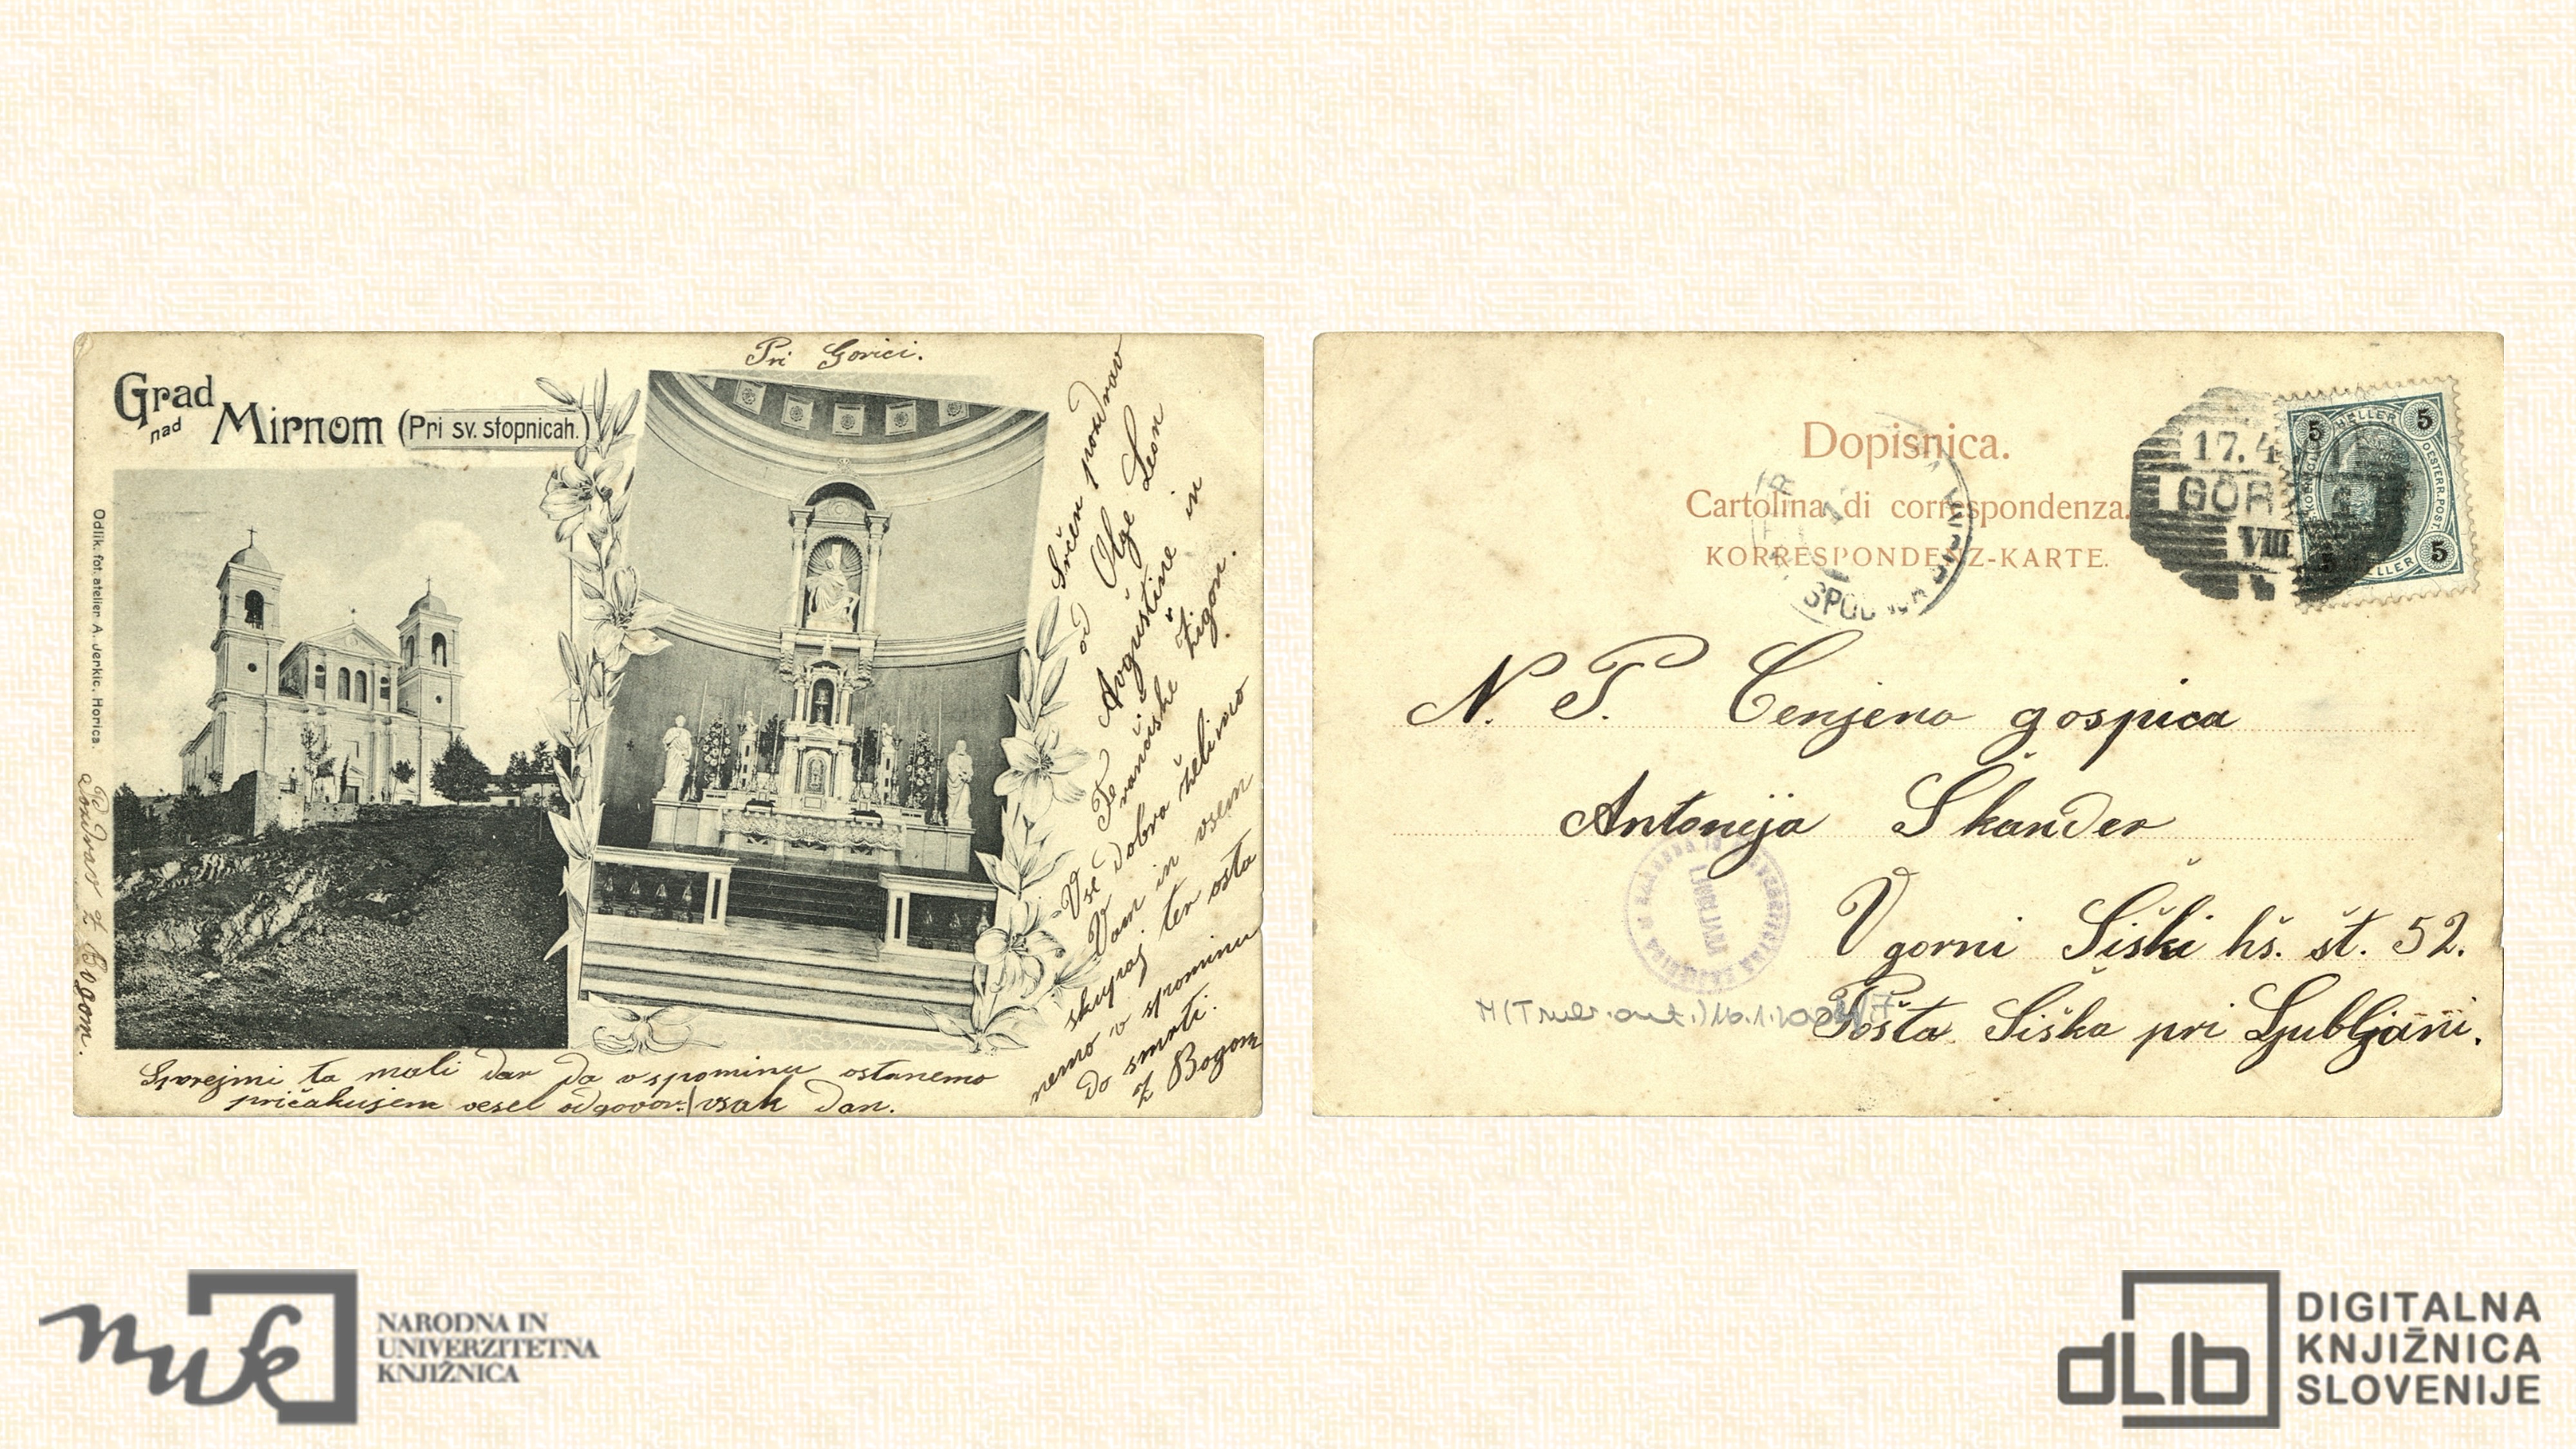 Pri Gorici.
Grad nad Mirnom (Pri sv. stopnicah.)
Odlik. fot. atelier A. Jerkič, Horica.
Pozdrav z Bogom.
Srčen pozdrav
od Olge Leon
Avguštine in
Frančiške Žigon.
Vse dobro želimo
Vam in vsem
skupaj ter osta
nemo v spominu
do smrti.
z Bogom
Sprejmi ta mali dar da v spominu ostanemo
pričakujem vesel odgovor / vsak dan.
Dopisnica.
Cartolina di correspondenza.
KORRESPONDENZ-KARTE.
17.4
GÖR
VIII
5 HELLER 5
OESTERR. POST.
5
N. T. Cenjena gospica
Antonija Škander
V gorni Šiški hš. št. 52.
Pošta Šiška pri Ljubljani.
LJUBLJANA
NARODNA IN
UNIVERZITETNA
KNJIŽNICA
nuk
dLib
DIGITALNA
KNJIŽNICA
SLOVENIJE